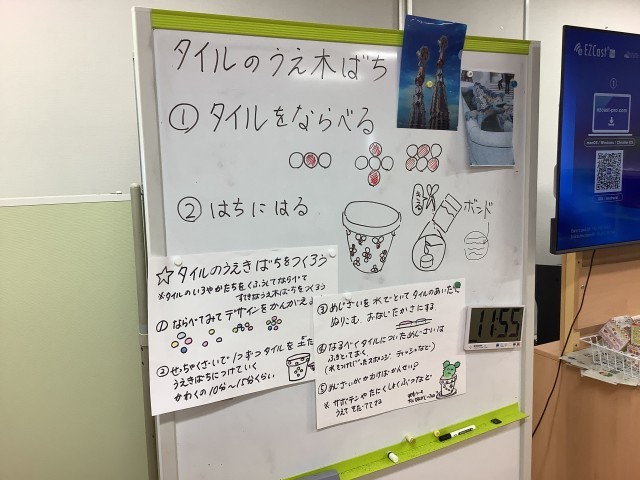 タイルのうえ木ばち
①タイルをならべる
②はちにはる
きる
ボンド
☆タイルのうえきばちをつくろう
※タイルのいろやかたちをくふうしてならべて
すてきなうえ木ばちをつくろう
① ならべてみてデザインをかんがえ
②せっちゃくざいで1つずつタイルを
うえきばちにつけていく
かわくの10分〜15分くらい
③めじざいを水でといてタイルのあいだに
ぬりこむ. おなじたかさにする
④なるべくタイルについためじざいは
ふきとっておく
⑤めじざいがかわけばかんせい
※ サボテンやたにくしょくぶつなど
うえてそだててね
11:55
EZCast
①